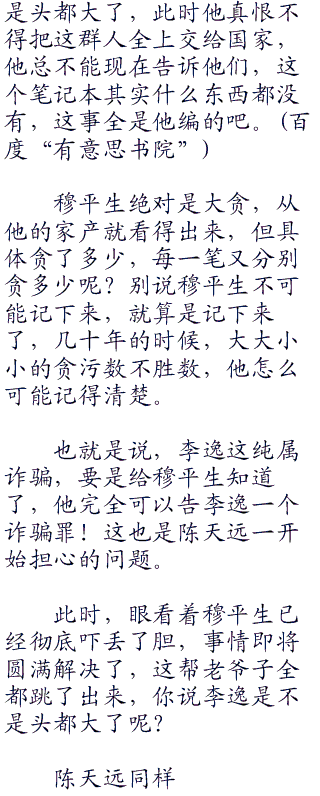 是头都大了，此时他真恨不
得把这群人全上交给国家，
他总不能现在告诉他们，这
个笔记本其实什么东西都没
有，这事全是他编的吧。(百
度“有意思书院”)
穆平生绝对是大贪，从
他的家产就看得出来，但具
体贪了多少，每一笔又分别
贪多少呢？别说穆平生不可
能记下来，就算是记下来
了，几十年的时候，大大小
小的贪污数不胜数，他怎么
可能记得清楚。
也就是说，李逸这纯属
诈骗，要是给穆平生知道
了，他完全可以告李逸一个
诈骗罪！这也是陈天远一开
始担心的问题。
此时，眼看着穆平生已
经彻底吓丢了胆，事情即将
圆满解决了，这帮老爷子全
都跳了出来，你说李逸是不
是头都大了呢？
陈天远同样